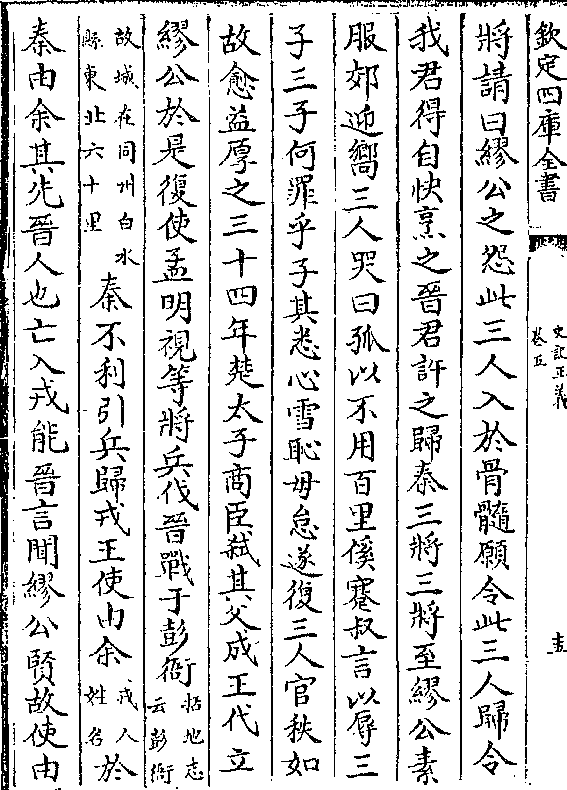 欽定四庫全書
史記正義
卷五
十五
將請曰繆公之怨此三人入於骨髓願令此三人歸令
我君得自快烹之晉君許之歸秦三將三將至繆公素
服郊迎嚮三人哭曰孤以不用百里傒蹇叔言以辱三
子三子何罪乎子其悉心雪恥毋怠遂復三人官秩如
故愈益厚之三十四年楚太子商臣弑其父成王代立
繆公於是復使孟明視等將兵伐晉戰于彭衙
括地志
云彭衙
故城在同州白水
縣東北六十里
秦不利引兵歸戎王使由余
戎人
姓名
於
秦由余其先晉人也亡入戎能晉言聞繆公賢故使由